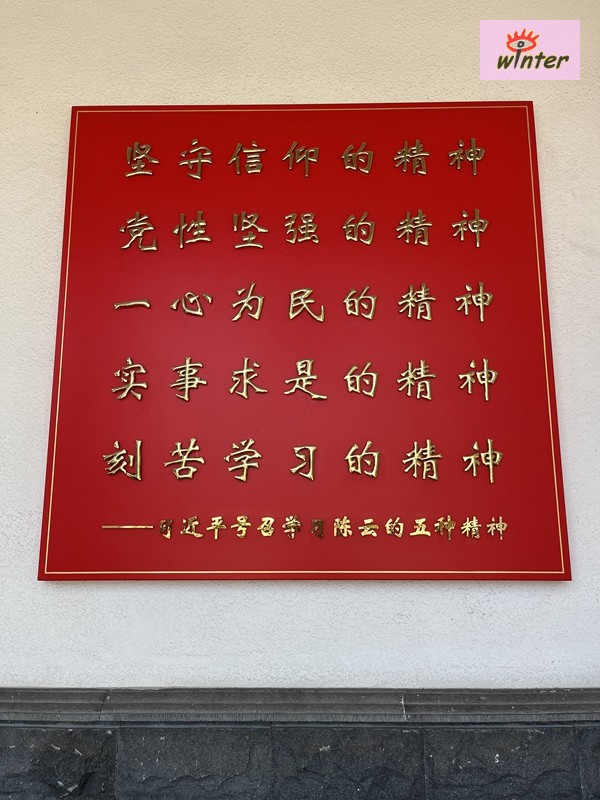 winter
坚守信仰的精神
党性坚强的精神
一心为民的精神
实事求是的精神
刻苦学习的精神
——习近平号召学习陈云的五种精神